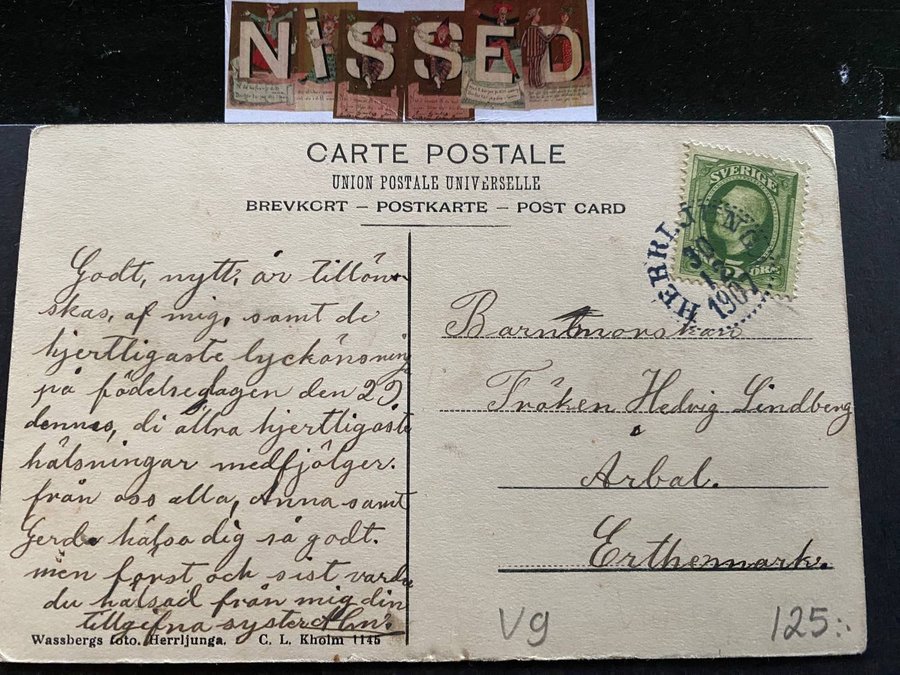 NISSED
CARTE POSTALE
UNION POSTALE UNIVERSELLE
BREVKORT – POSTKARTE – POST CARD
SVERIGE
5 ÖRE
HERRLJUNGA
30
1907
Godt, nytt, år tillön-
skas, af mig, samt de
hjertligaste lyckönsning
på födelsedagen den 29
dennes, di allra hjertligaste
hälsningar medfjölger.
från oss alla, Anna samt
Gerda hälsa dig så godt.
men först och sist varde
du hälsad från mig din
tillgifna syster
Barnmorskan
Fröken Hedvig Lindberg
Arbal.
Erthemark.
Wassbergs foto. Herrljunga. C. L. Kholm 1145
Vg
125:-